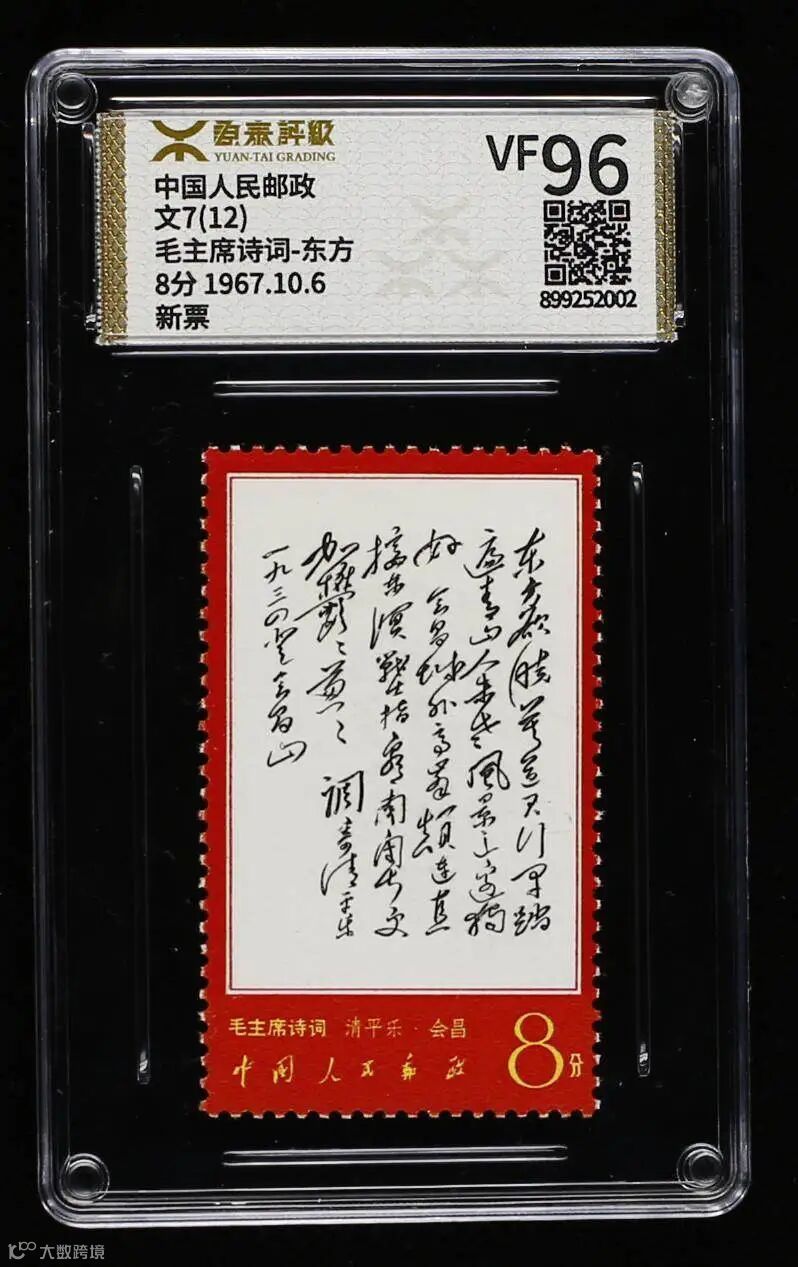 源泰評級
YUAN-TAI GRADING
中国人民邮政
文7(12)
毛主席诗词-东方
8分 1967.10.6
新票
VF96
899252002
东方欲晓莫道君行早踏
遍青山人未老風景这边独
好 会昌城外高峰颠连直
接东溟戰士指看南粤更
加鬱々葱々 調寄清平乐
一九三四登会昌山
毛主席诗词 清平乐·会昌
中国人民邮政
8分
大数跨境